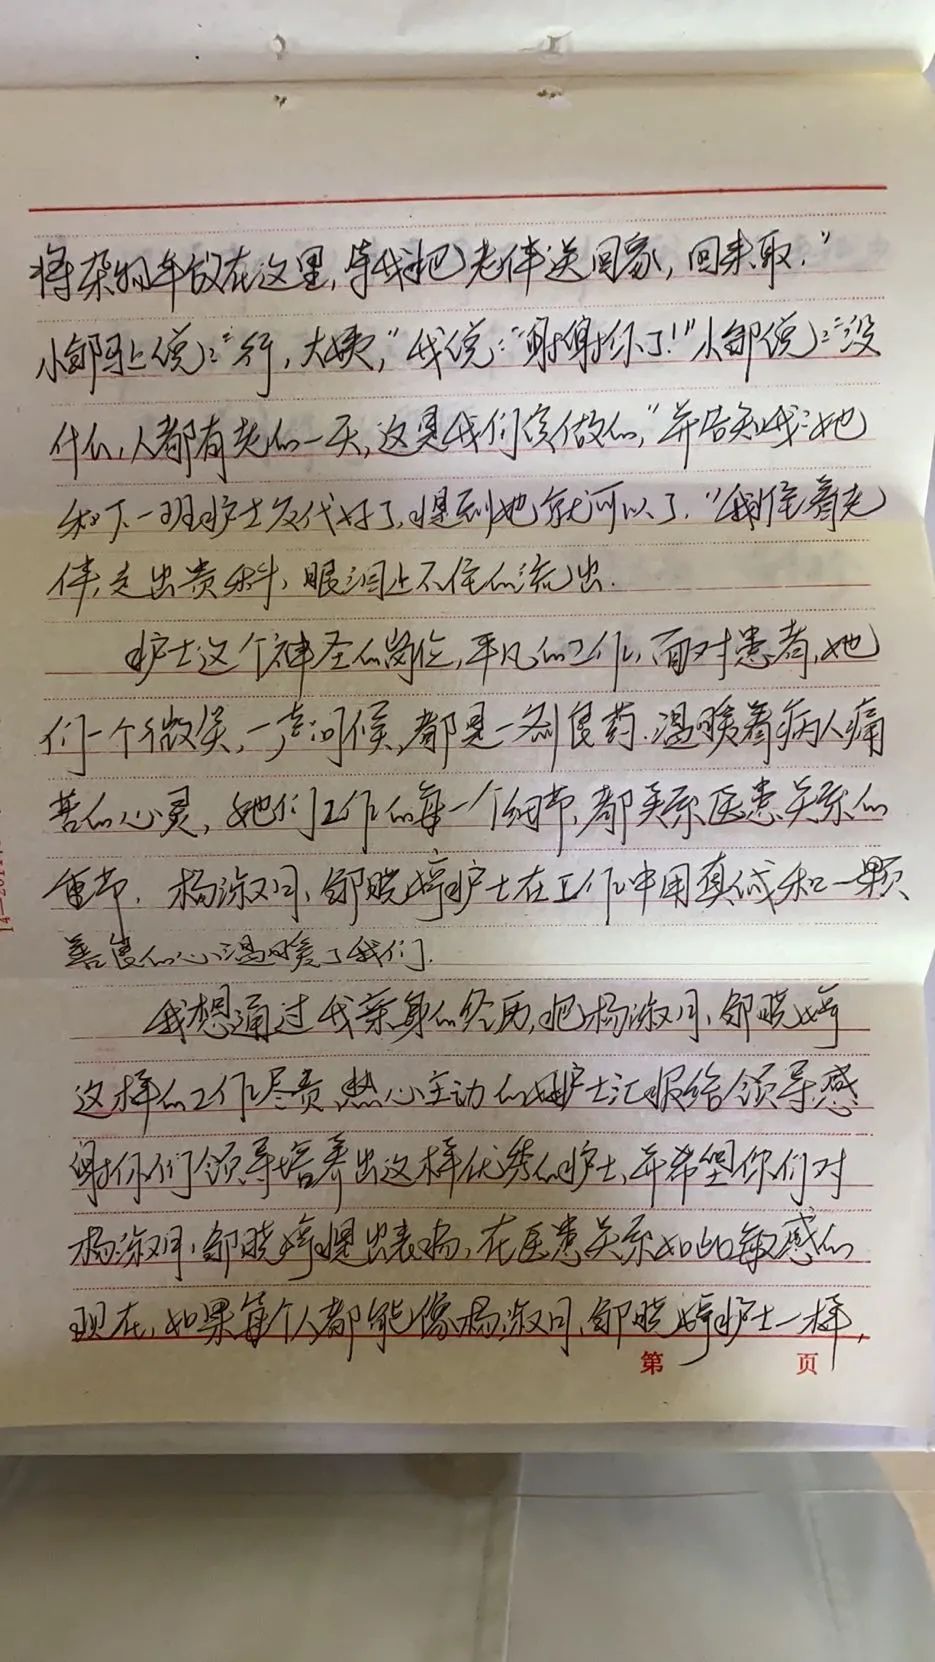 将杂物车放在这里,等我把老伴送回家,回来取."
小邹马上说:"行,大姨,"我说:"谢谢你了!"小邹说:"没
什么,人都有老的一天,这是我们应做的,"并告知我:她
和下一班护士交代好了,提到她就可以了."我推着老
伴,走出贵科,眼泪止不住的流出.
护士这个神圣的岗位,平凡的工作,面对患者,她
们一个微笑,一声问候,都是一剂良药.温暖着病人痛
苦的心灵,她们工作的每一个细节,都关系医患关系的
重节.杨淑月、邹晓婷护士在工作中用真诚和一颗
善良的心温暖了我们.
我想通过我亲身的经历,把杨淑月、邹晓婷
这样的工作尽责、热心主动的好护士汇报给领导感
谢你们领导培养出这样优秀的护士,并希望你们对
杨淑月、邹晓婷提出表扬,在医患关系如此敏感的
现在,如果每个人都能像杨淑月、邹晓婷护士一样,
第 页